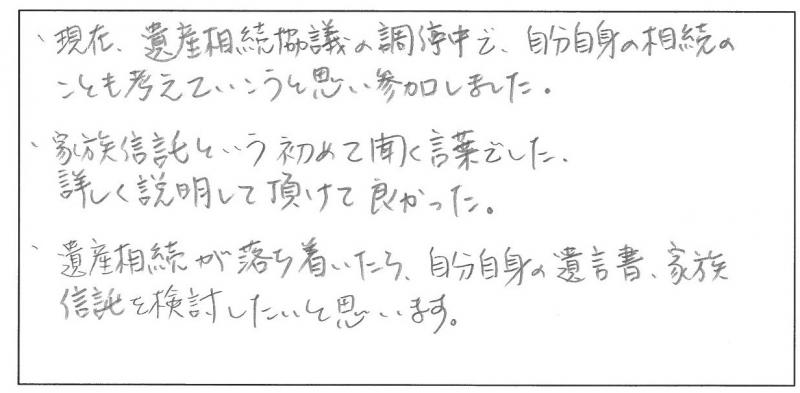 、現在、遺産相続協議の調停中で、自分自身の相続の
ことも考えていこうと思い参加しました。
、家族信託という初めて聞く言葉でした、
詳しく説明して頂けて良かった。
、遺産相続が落ち着いたら、自分自身の遺言書、家族
信託を検討したいと思います。